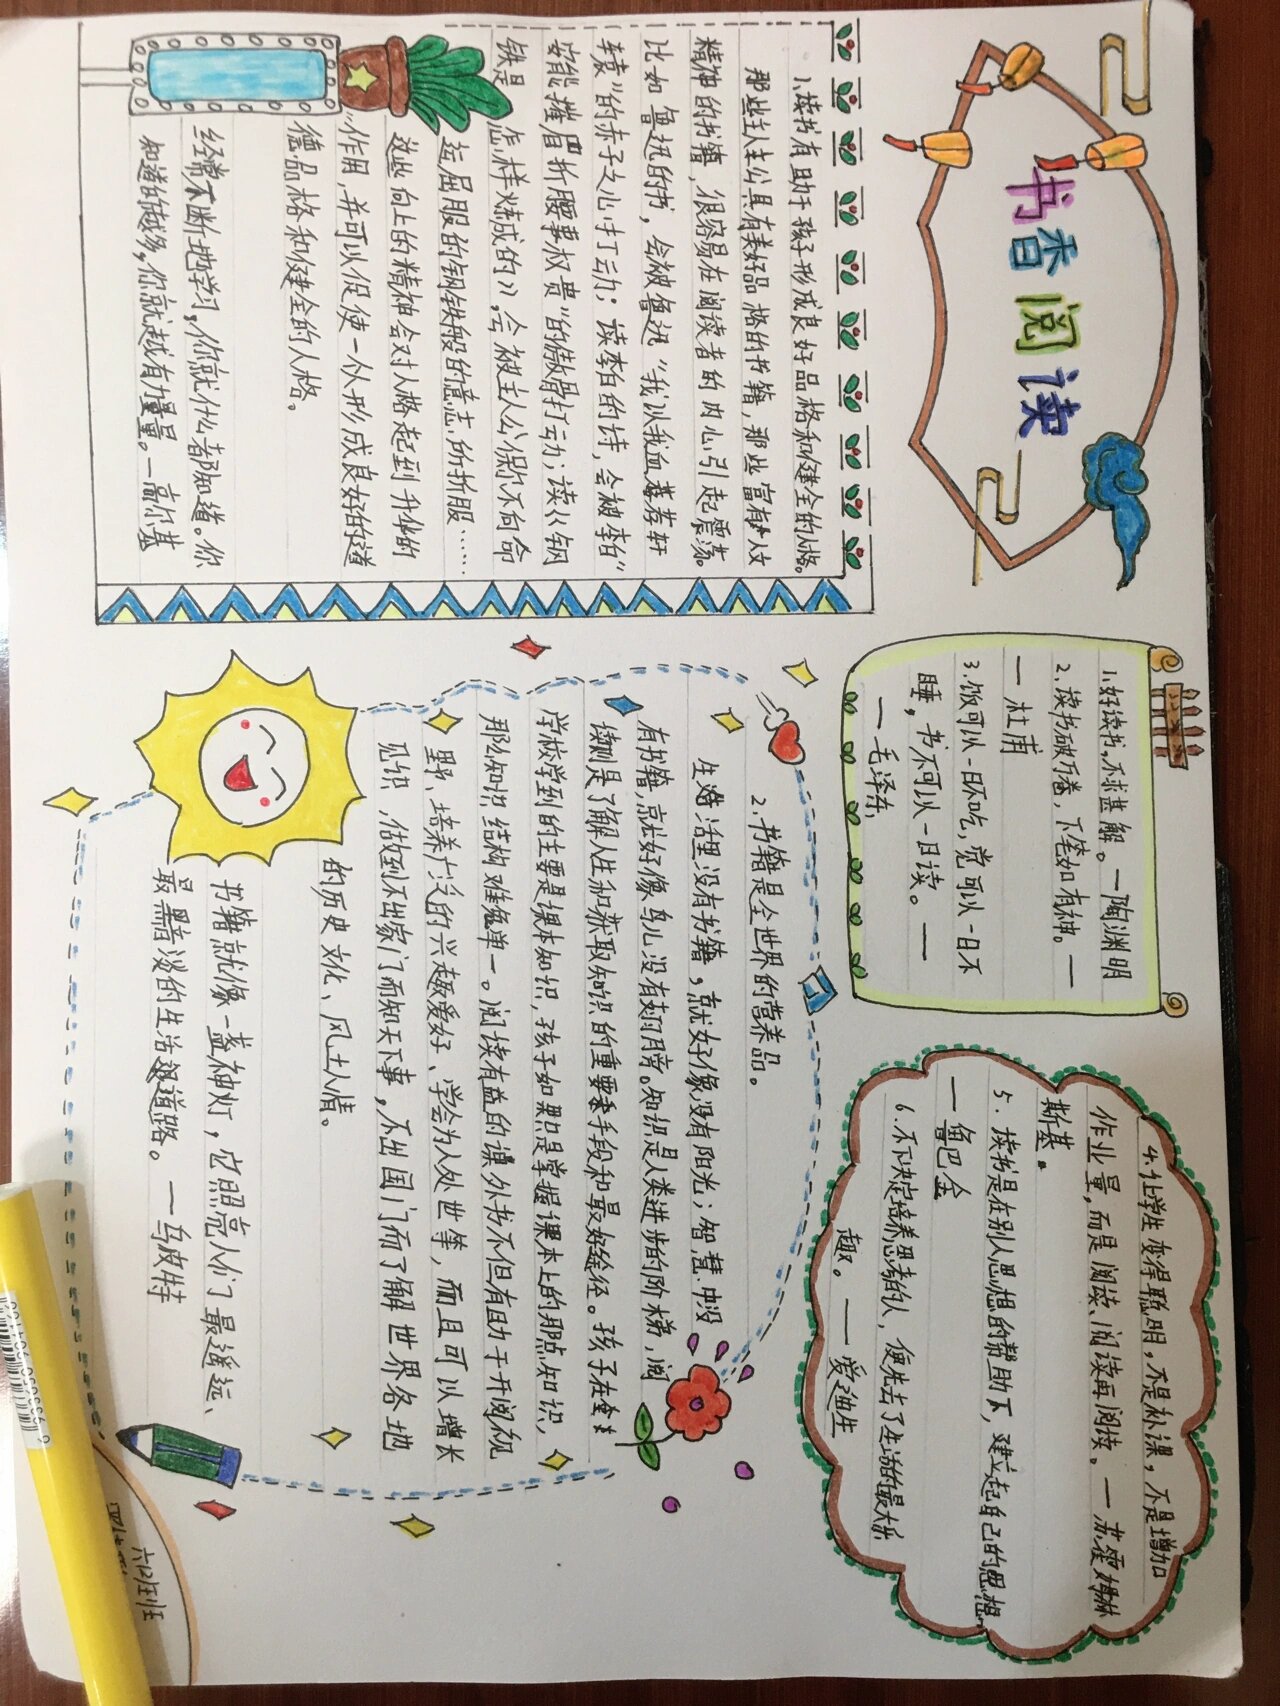 书香阅读
1.读书有助于孩子形成良好品格和健全的人格。
那些主人公具有美好品格的书籍,那些富有人文
精神的书籍,很容易在阅读者的内心引起震荡。
比如鲁迅的书,会被鲁迅“我以我血荐轩
辕”的赤子之心打动;读李白的诗,会被李白“
安能摧眉折腰事权贵”的傲骨打动;读《钢
铁是怎样炼成的》,会被主人公保尔不向命
运屈服的钢铁般的意志所折服……
这些向上的精神会对人格起到升华的
作用,并可以促使一个人形成良好的道
德品格和健全的人格。
经常不断地学习,你就什么都知道。你
知道的越多,你就越有力量。—高尔基
1.好读书,不求甚解。—陶渊明
2.读书破万卷,下笔如有神。—
—杜甫
3.饭可以一日不吃,觉可以一日不
睡,书不可以一日读。——
——毛泽东
4.让学生变得聪明,不是补课,不是增加
作业量,而是阅读、阅读再阅读。—苏霍姆林
斯基。
5.读书是在别人思想的帮助下,建立起自己的思想
—鲁巴金
6.不下决定培养思考的人,便失去了生活的最大乐
趣。——爱迪生
2.书籍是全世界的营养品。
生活里没有书籍,就好像没有阳光;智慧中没
有书籍,就好像鸟儿没有翅膀。知识是人类进步的阶梯,阅
读则是了解人生和获取知识的重要手段和最好途径。孩子在
学校学到的主要是课本知识,孩子如果只是掌握课本上的那点知识,
那么知识结构难免单一。阅读有益的课外书不但有助于开阔视
野、培养广泛的兴趣爱好、学会为人处世等,而且可以增长
见识,做到不出家门而知天下事,不出国门而了解世界各地
的历史文化、风土人情。
书籍就像一盏神灯,它照亮人们最遥远、
最黑暗淡的生活道路。—乌皮特
六(2)班